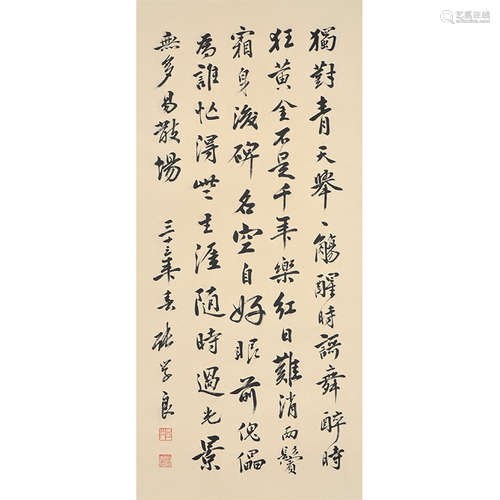 獨對青天舉一觴醒時謌舞醉時
狂黃金不是千年樂紅日難消兩鬢
霜身後碑名空自好眼前傀儡
為誰忙得些生涯隨時過光景
無多易散場
三十三年春 張學良
艺狐在线